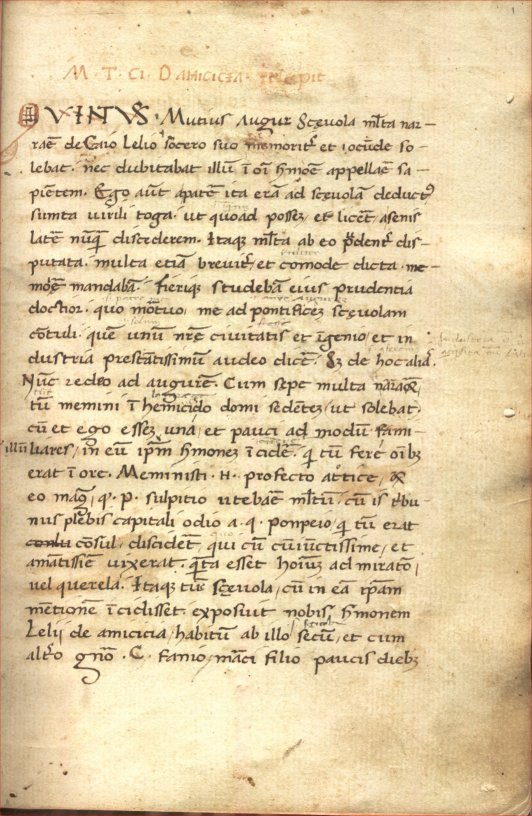 M. T. CI. D AMICICIA. incipit
QVINTVS. Mutius Augur Scęuola ml̄ta nar-
raē de Caio Lelio socero suo memorit᷑ et iocūde so-
lebat. nec dubitabat illū ī oī s̄moē appellaē sa-
piētem. Ego aūt a patē ita erā ad scęuolā deduct᷒
sumta uirili toga. ut quoad possez et licēt a senis
latē nūq̄ discederem. Itaq̨ ml̄ta ab eo p̄dent᷑ dis-
putata. multa etiā breuit᷑ et comode dicta. me-
moē mandabā. fieriq̨ studebā eius prudentia
doctior. quo mōtuo, me ad pontificez scęuolam
cōtuli. quē unū nr̄e ciuitatis et īgenio, et in
dustria prestātissimū audeo dicē. Sz de hoc alia᷒.
Nūc redeo ad augurē. Cum sepe multa
tū memini ī hemiciclo domi sedētez, ut solebat,
cū et ego essez una, et pauci ad modū fami-
illū liares, in eū ip̄m s̄monez īcidē. q̄ tū ferē oībz
erat ī ore. Meministi. N. profecto attice, &
eo mag᷒, q. P. sulpitio utebaē ml̄tū, cū is t᷑bu-
nus plebis capitali odio a. q. pompeio, q̄ tū erat
cōsul, discidēt, qui cū cūiūctissime, et
amātissiē uixerat. q̄ta esset hoīuz admirātō,
uel querela. Itaq̨ tūc scęuola, cū in eā ip̄am
mētionē īcidisset. exposuit nobis s̄monem
Lelij de amicicia, habitū ab illo secū, et cum
alt᷑o gn̄o. C. Fanio, mārci filio paucis diebz